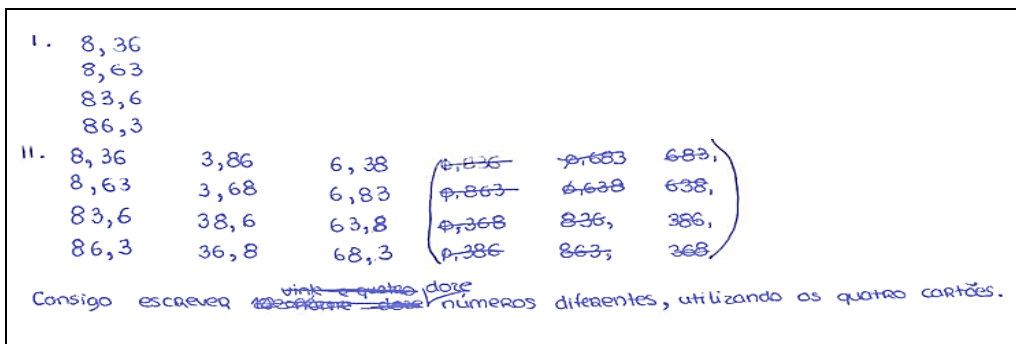 I. 8,36
8,63
83,6
86,3
II. 8,36 3,86 6,38 (0,836 0,683 683,
8,63 3,68 6,83 0,863 0,638 638,
83,6 38,6 63,8 0,368 836, 386,
86,3 36,8 68,3 0,386 863, 368,)
vinte e quatro doze
Consigo escrever doze números diferentes, utilizando os quatro cartões.